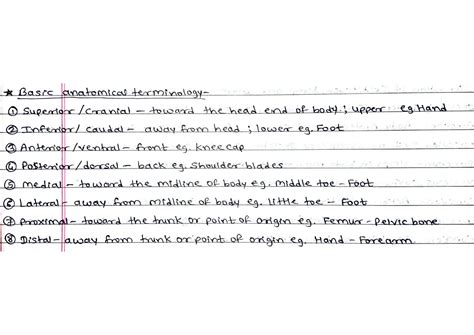 ★ Basic anatomical terminology-
① Superior/cranial - toward the head end of body ; upper eg. Hand
② Inferior/ caudal - away from head ; lower eg. Foot
③ Anterior/ventral - front eg. knee cap
④ Posterior/dorsal - back eg. Shoulder blades
⑤ medial - toward the midline of body eg. middle toe - Foot
⑥ Lateral - away from midline of body eg. little toe - Foot
⑦ Proximal - toward the trunk or point of origin eg. Femur - Pelvic bone
⑧ Distal - away from trunk or point of origin eg. Hand - Forearm